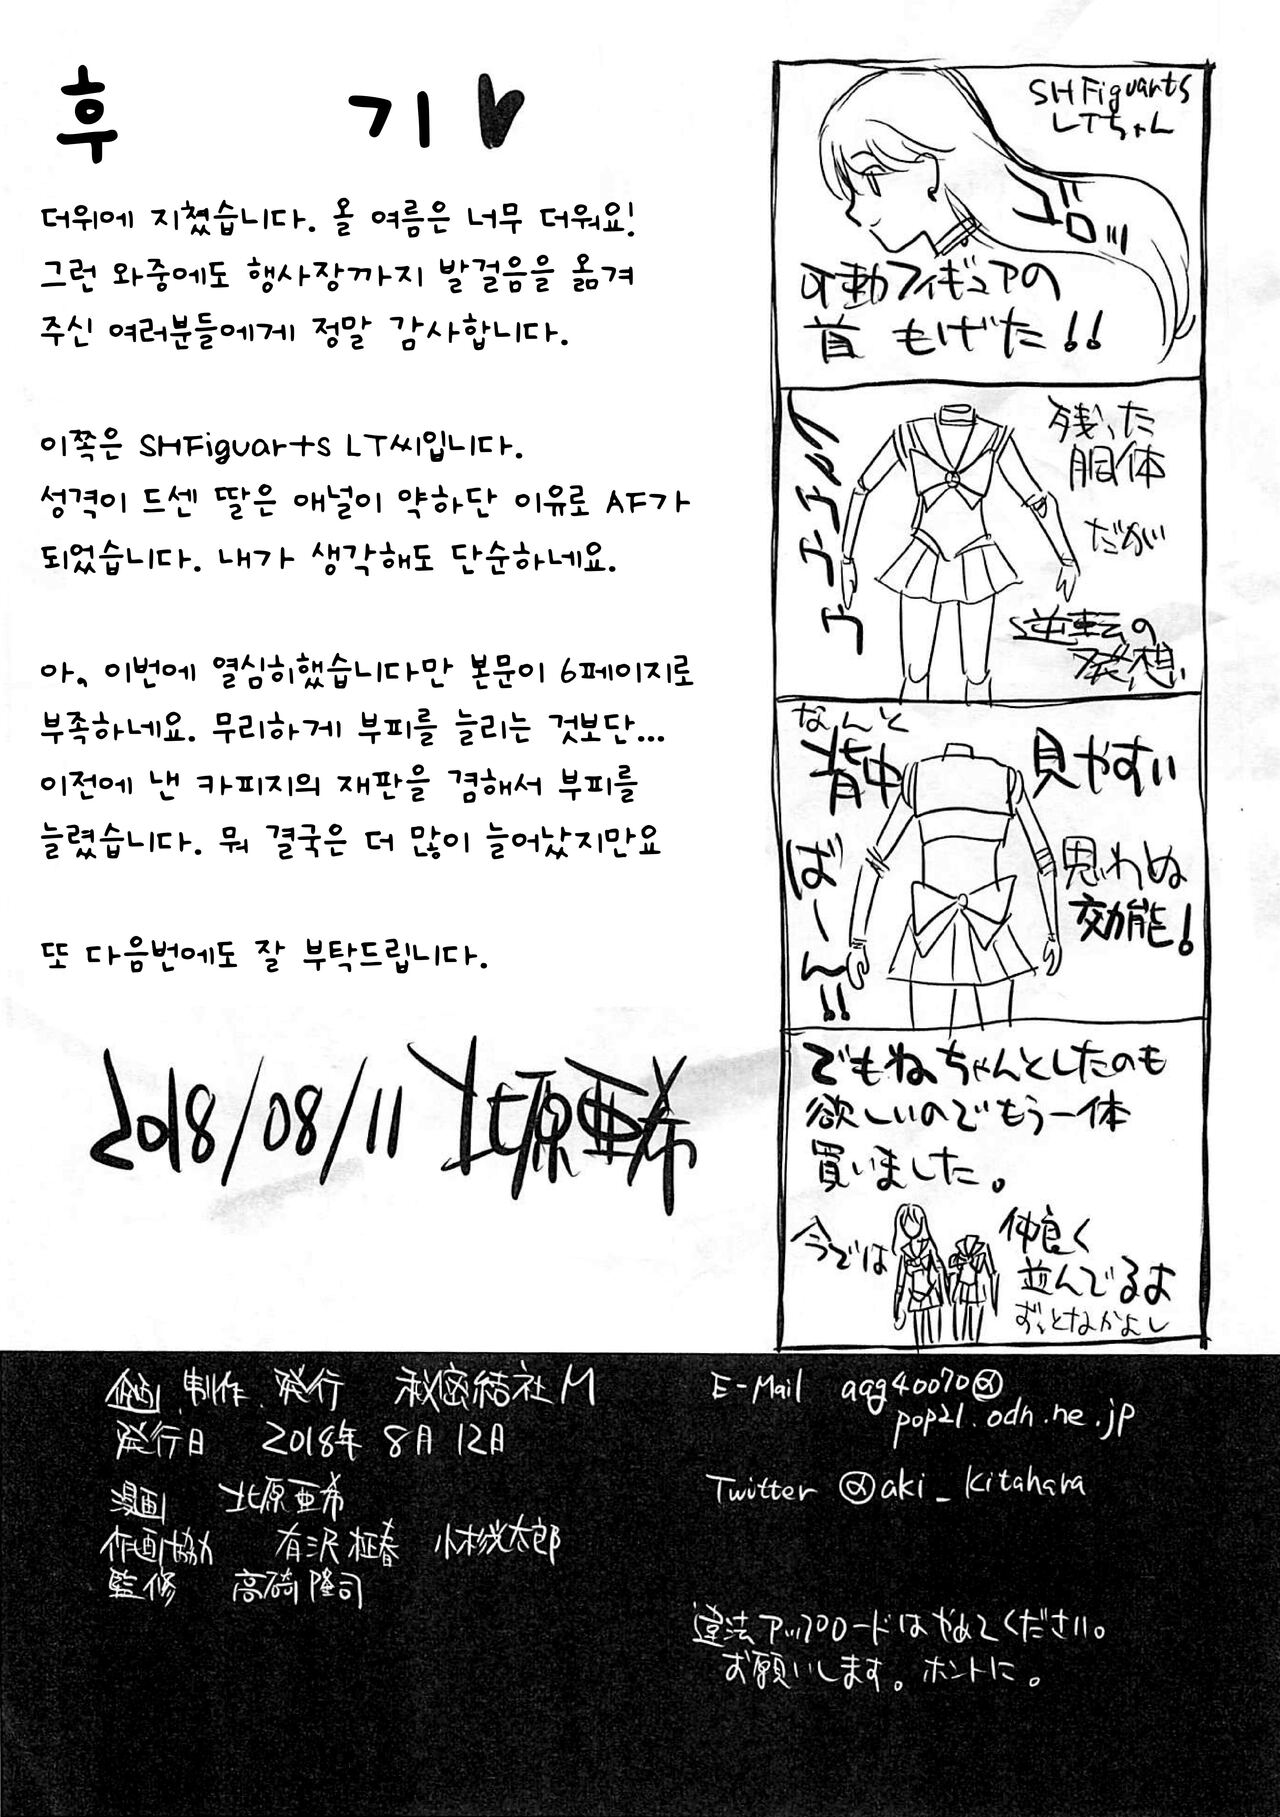 후 기
더위에 지쳤습니다. 올 여름은 너무 더워요!
그런 와중에도 행사장까지 발걸음을 옮겨
주신 여러분들에게 정말 감사합니다.
이쪽은 SHFiguarts LT씨입니다.
성격이 드센 딸은 애널이 약하단 이유로 AF가
되었습니다. 내가 생각해도 단순하네요.
아, 이번에 열심히했습니다만 본문이 6페이지로
부족하네요. 무리하게 부피를 늘리는 것보단...
이전에 낸 카피지의 재판을 겸해서 부피를
늘렸습니다. 뭐 결국은 더 많이 늘어났지만요
또 다음번에도 잘 부탁드립니다.
2018/08/11 北原亜希
SHFiguarts
LTちゃん
ゴロッ
可動フィギュアの
首 もげた!!
残った
胴体
だが
逆転の
発想
なんと
背中 見やすい
ばーん!!
思わぬ
効能!
でもね、ちゃんとしたのも
欲しいのでもう一体
買いました。
今では
仲良く
並んでるよ
ずっとなかよし
企画、制作、発行 秘密結社M
発行日 2018年 8月 12日
漫画 北原亜希
作画協力 有沢 小杉 太郎
監修 高碕隆司
E-Mail agg40070@
pop21.odn.ne.jp
Twitter @aki_kitahara
違法アップロードはやめてください。
お願いします。ホントに。